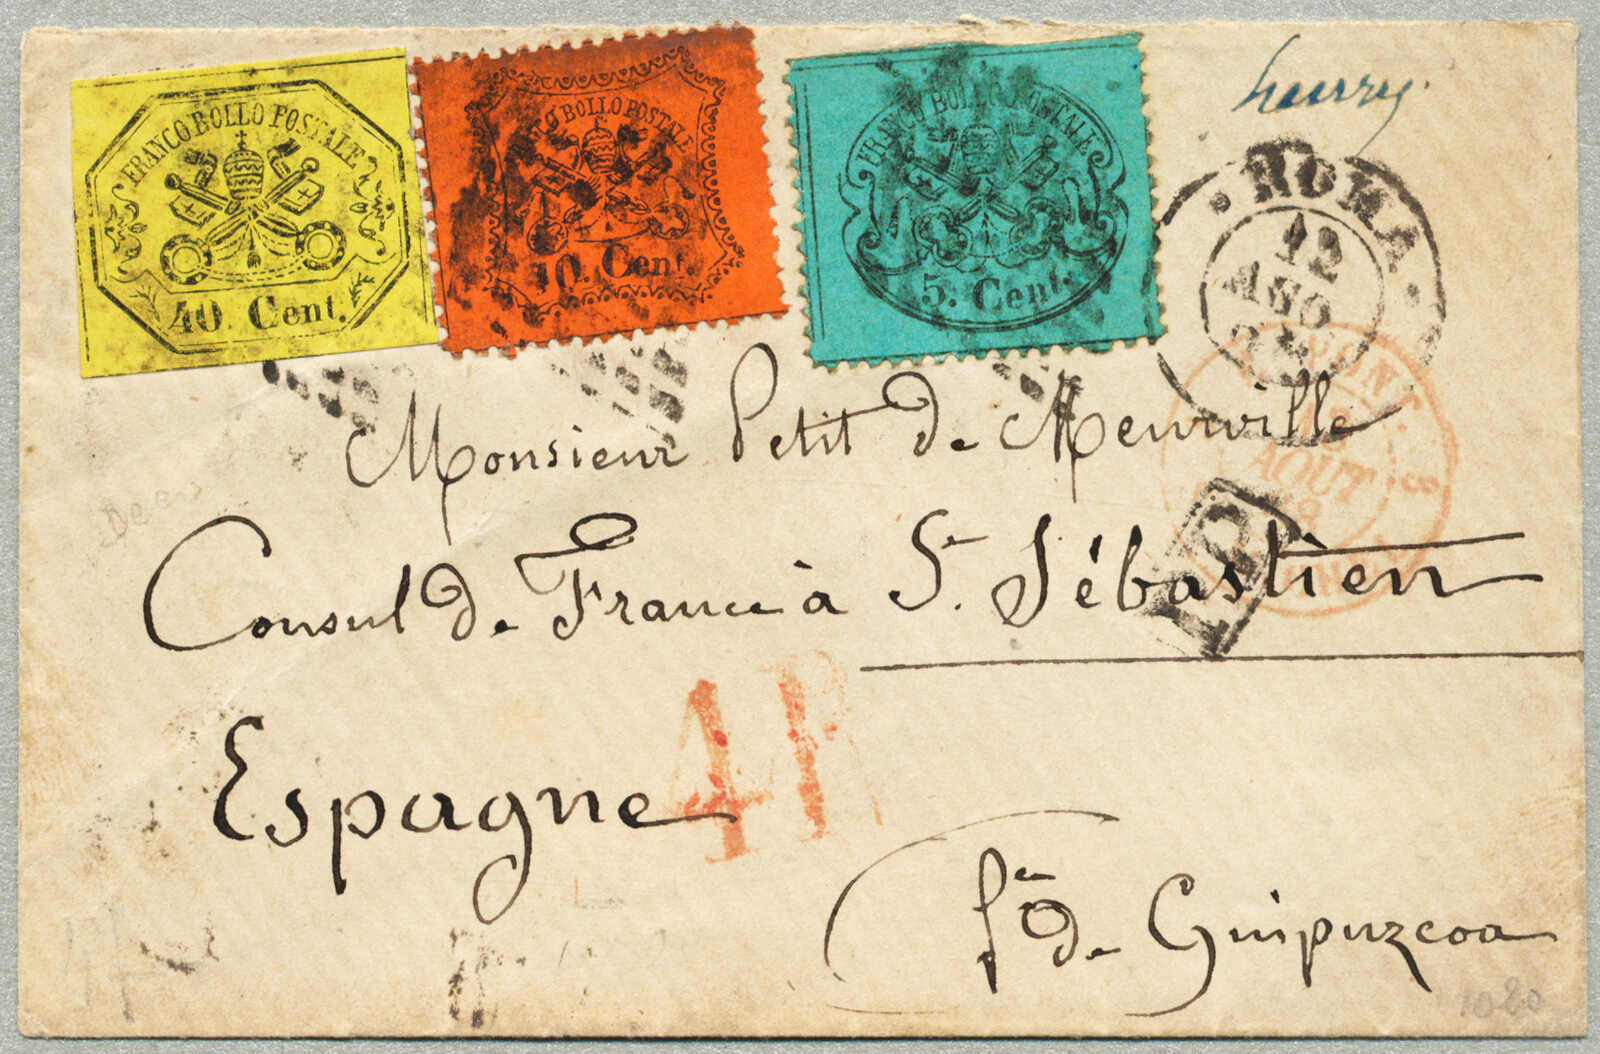 FRANCO BOLLO POSTALE
40 Cent.
BOLLO POSTALE
10. Cent.
FRANCO BOLLO POSTALE
5. Cent.
ROMA
12
AGO
PONT.
AOUT
18
PD
Monsieur Petit de Meurville
Consul de France à St. Sébastien
Espagne
4R
Pce de Guipuzcoa
1080